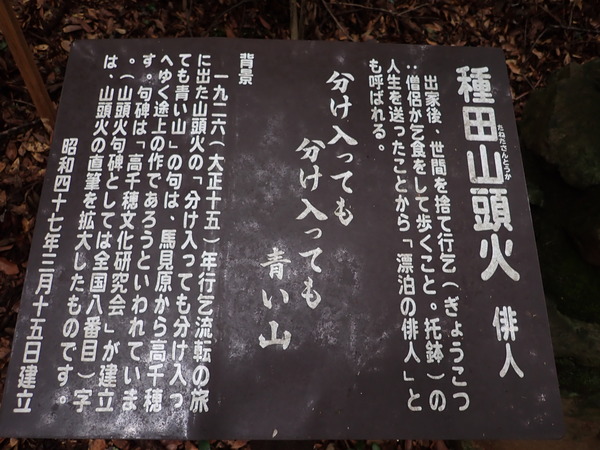 種田山頭火 俳人
たねださんとうか
出家後、世間を捨て行乞(ぎょうこつ
:僧侶が乞食をして歩くこと。托鉢)の
人生を送ったことから「漂泊の俳人」と
も呼ばれる。
分け入っても
分け入っても
青い山
背景
一九二六(大正十五)年行乞流転の旅
に出た山頭火の「分け入っても分け入っ
ても青い山」の句は、馬見原から高千穂
へゆく途上の作であろうといわれていま
す。句碑は「高千穂文化研究会」が建立
。(山頭火句碑としては全国八番目)字
は、山頭火の直筆を拡大したものです。
昭和四十七年三月十五日建立